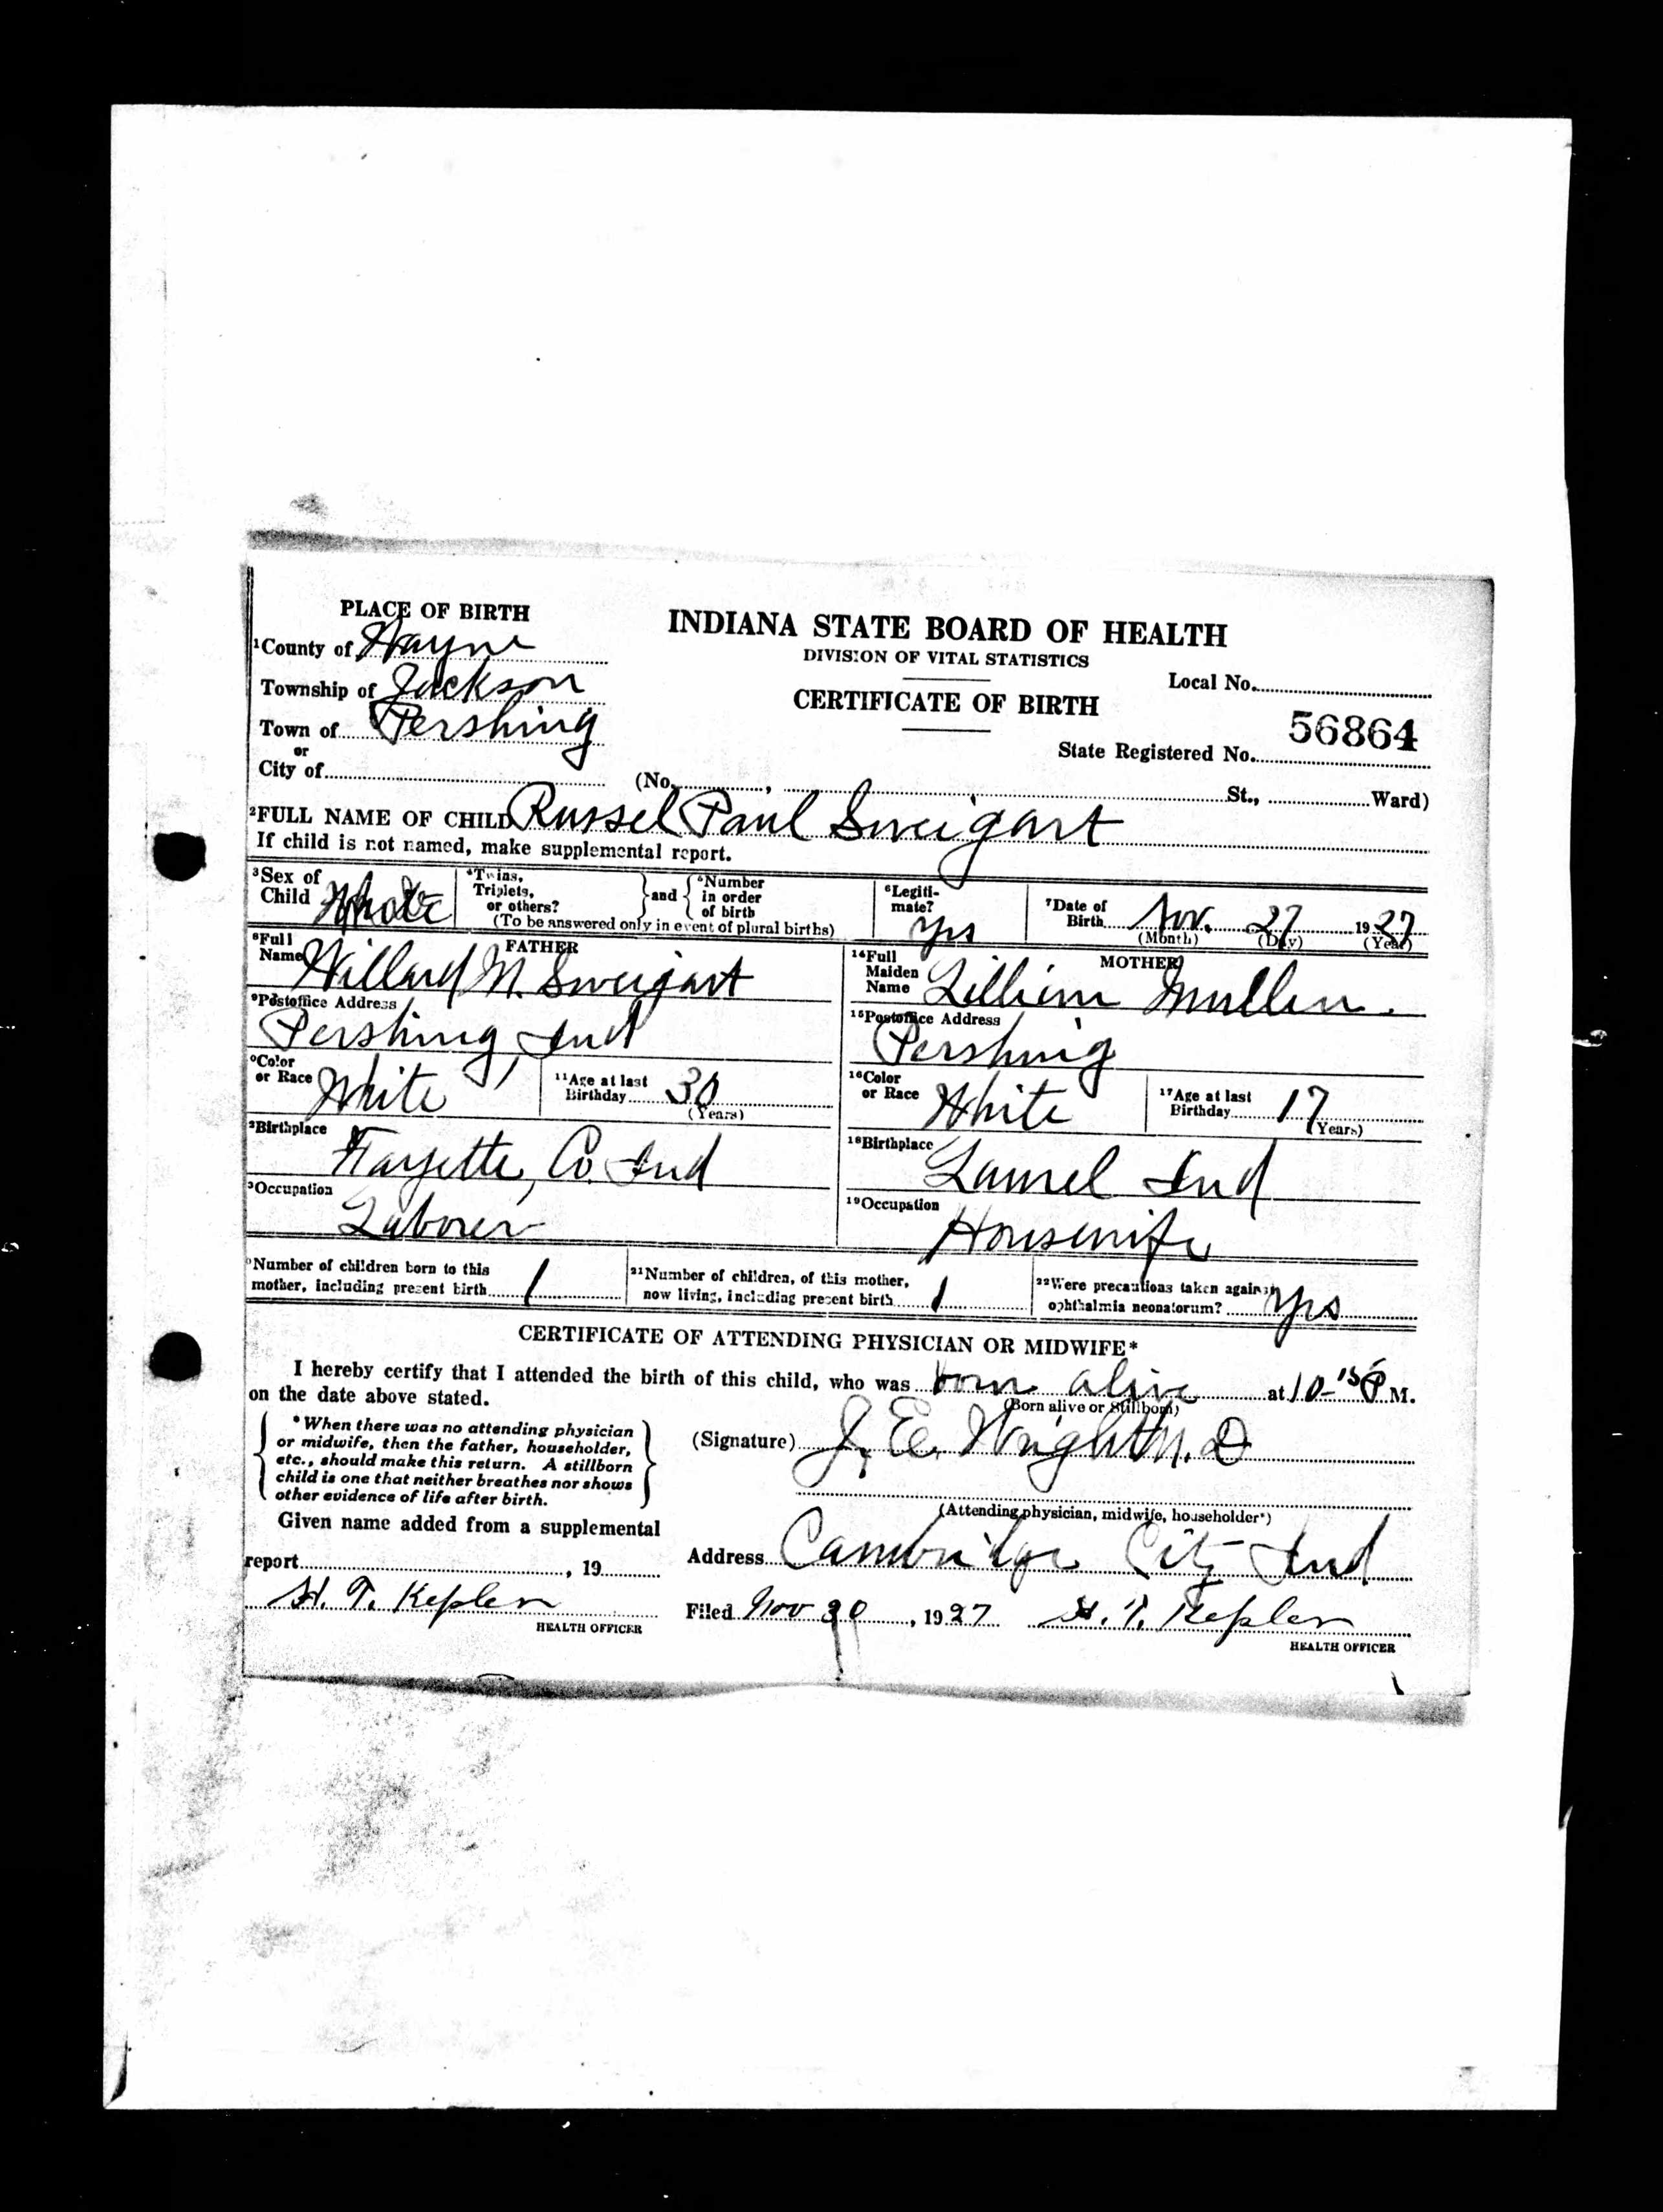 PLACE OF BIRTH
INDIANA STATE BOARD OF HEALTH
DIVISION OF VITAL STATISTICS
CERTIFICATE OF BIRTH
1County of Wayne
Township of Jackson
Town of Pershing
or
City of
Local No.
State Registered No. 56864
(No. , St., Ward)
2FULL NAME OF CHILD Russel Paul Sweigart
If child is not named, make supplemental report.
3Sex of Child
4Twins, Triplets, or others? and 5Number in order of birth
(To be answered only in event of plural births)
6Legiti-mate? yes
7Date of Birth Nov. 27 1927
(Month) (Day) (Year)
FATHER
8Full Name Willard M. Sweigart
9Postoffice Address
Pershing, Ind
0Color or Race White
11Age at last Birthday 30
(Years)
2Birthplace
Fayette, Co. Ind
3Occupation
Laborer
MOTHER
14Full Maiden Name Lilliem Mullin.
15Postoffice Address
Pershing
16Color or Race White
17Age at last Birthday 17
(Years)
18Birthplace
Laurel Ind
19Occupation
Housewife
0Number of children born to this mother, including present birth 1
21Number of children, of this mother, now living, including present birth 1
22Were precautions taken against ophthalmia neonatorum? yes
CERTIFICATE OF ATTENDING PHYSICIAN OR MIDWIFE*
I hereby certify that I attended the birth of this child, who was born alive at 10-15 P M.
(Born alive or Stillborn)
on the date above stated.
*When there was no attending physician
or midwife, then the father, householder,
etc., should make this return. A stillborn
child is one that neither breathes nor shows
other evidence of life after birth.
(Signature) J. E. Wright M. D
(Attending physician, midwife, householder*)
Given name added from a supplemental
report , 19
H. T. Kepler
HEALTH OFFICER
Address Cambridge City Ind
Filed Nov 30, 1927 H. T. Kepler
HEALTH OFFICER